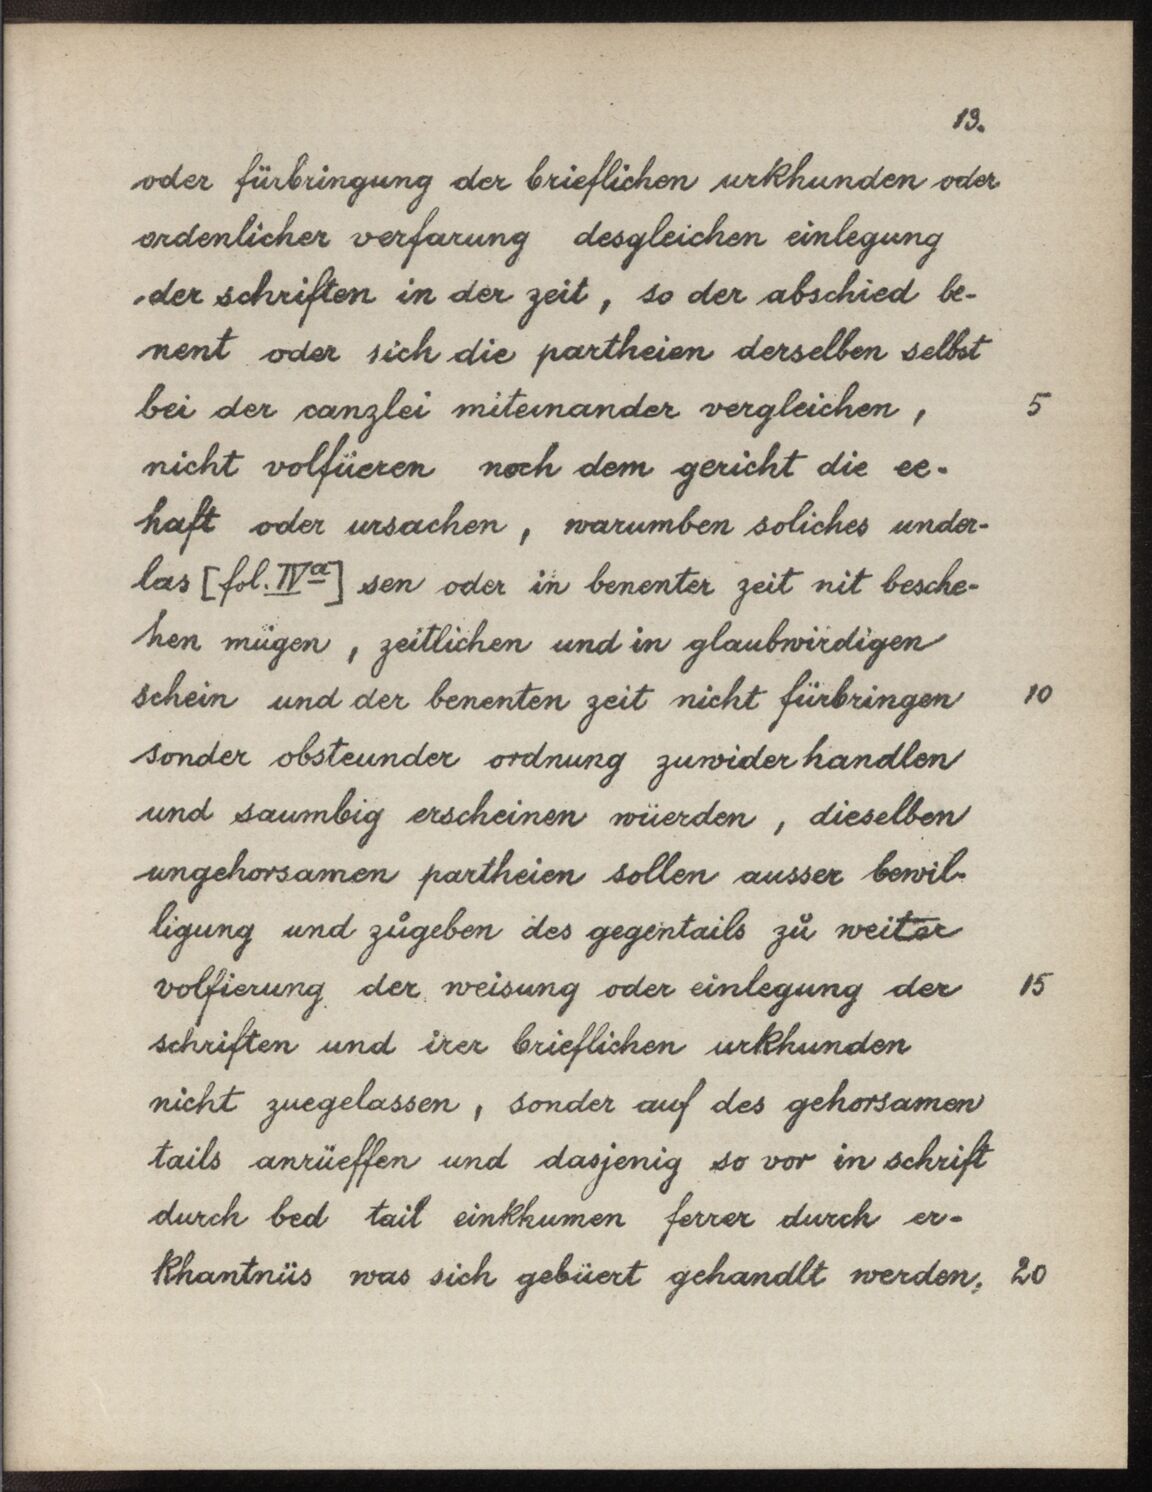 13.
oder fürbringung der brieflichen urkhunden oder
ordenlicher verfarung desgleichen einlegung
der schriften in der zeit, so der abschied be-
nent oder sich die partheien derselben selbst
bei der canzlei miteinander vergleichen, 5
nicht volfüeren noch dem gericht die ee-
haft oder ursachen, warumben soliches under-
las [fol. IVa] sen oder in benenter zeit nit besche-
hen mügen, zeitlichen und in glaubwirdigen
schein und der benenten zeit nicht fürbringen 10
sonder obsteunder ordnung zuwider handlen
und saumbig erscheinen wüerden, dieselben
ungehorsamen partheien sollen ausser bewil-
ligung und zůgeben des gegentails zů weiter
volfierung der weisung oder einlegung der 15
schriften und irer brieflichen urkhunden
nicht zuegelassen, sonder auf des gehorsamen
tails anrüeffen und dasjenig so vor in schrift
durch bed tail einkhumen ferrer durch er-
khantnüs was sich gebüert gehandlt werden; 20